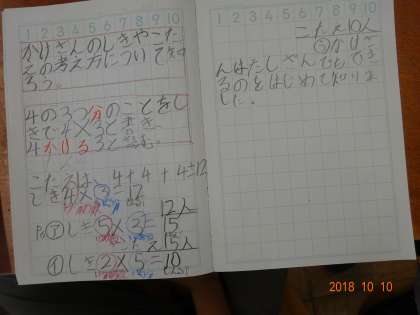 1 2 3 4 5 6 7 8 9 10
かけざんのしきやこた
えの考え方についてし
ろう。
4の3つ分のことをし
きで4×3と書き
4かける3と読む。
こたえは、4+4+4=12
しき4×3=12
12人
P.5 ㋐しき5×3=15
こたえ15人
㋑しき2×5=10
1 2 3 4 5 6 7 8 9 10
こたえ10人
かけざ
んはたしざんでもでき
るのをはじめて知りま
した。
2018 10 10